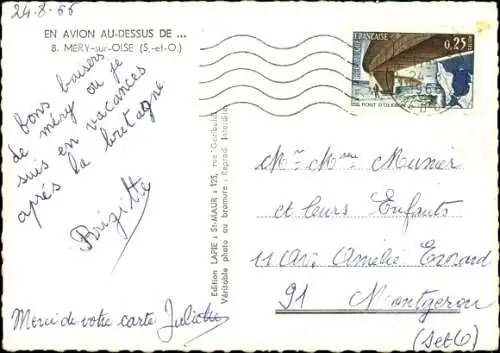 24-8-66
EN AVION AU-DESSUS DE ...
8. MÉRY-sur-OISE (S.-et-O.)
bons baisers
de méry ou je
suis en vacances
aprés la bretagne
Brigitte
Merci de votre carte Juliette
Edition LAPIE : St-MAUR : 125, rue Garibaldi
Véritable photo au bromure : Reprod. Interdite
REPUBLIQUE FRANÇAISE
0,25
POSTES
PONT D'OLERON
Mr Mme Meunier
et leurs Enfants
11 Av. Amélie
91 Montgeron
(Set O)